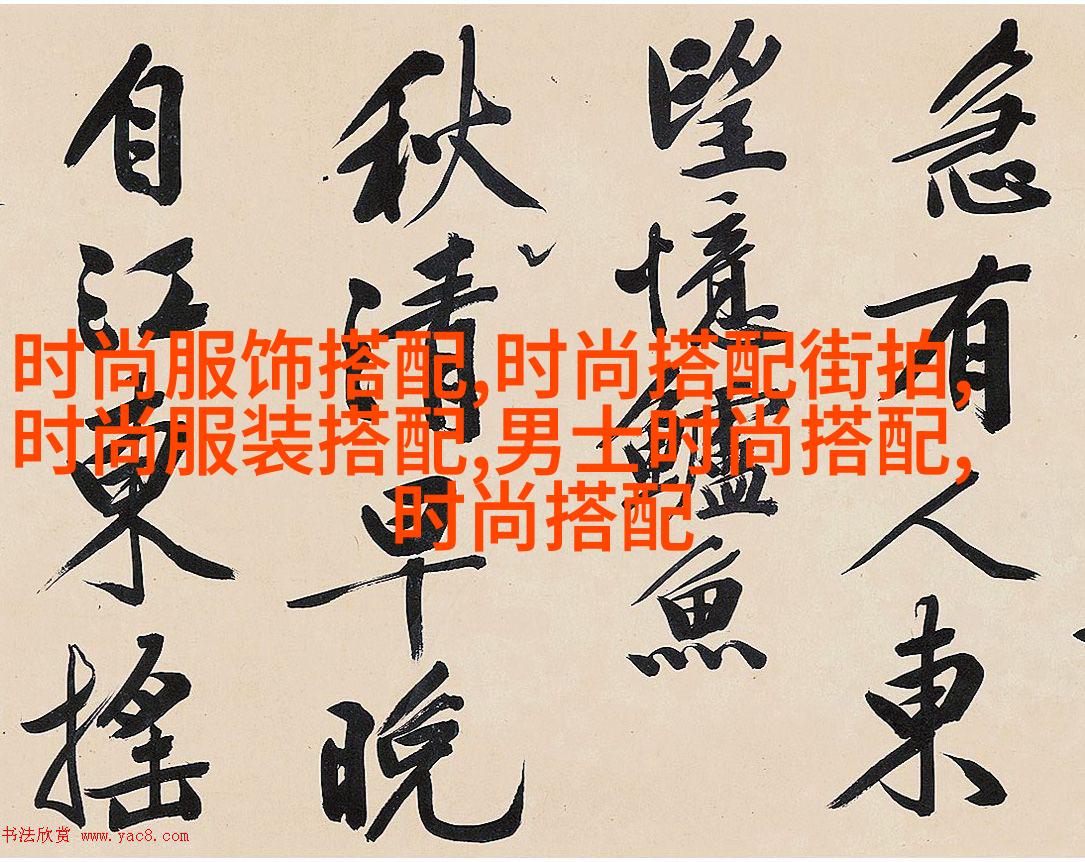 急有人東
望憶鱸魚
秋清早晚
自江東搖
时尚服饰搭配,时尚搭配街拍,
时尚服装搭配,男士时尚搭配,
时尚搭配
书法欣赏 www.yac8.com